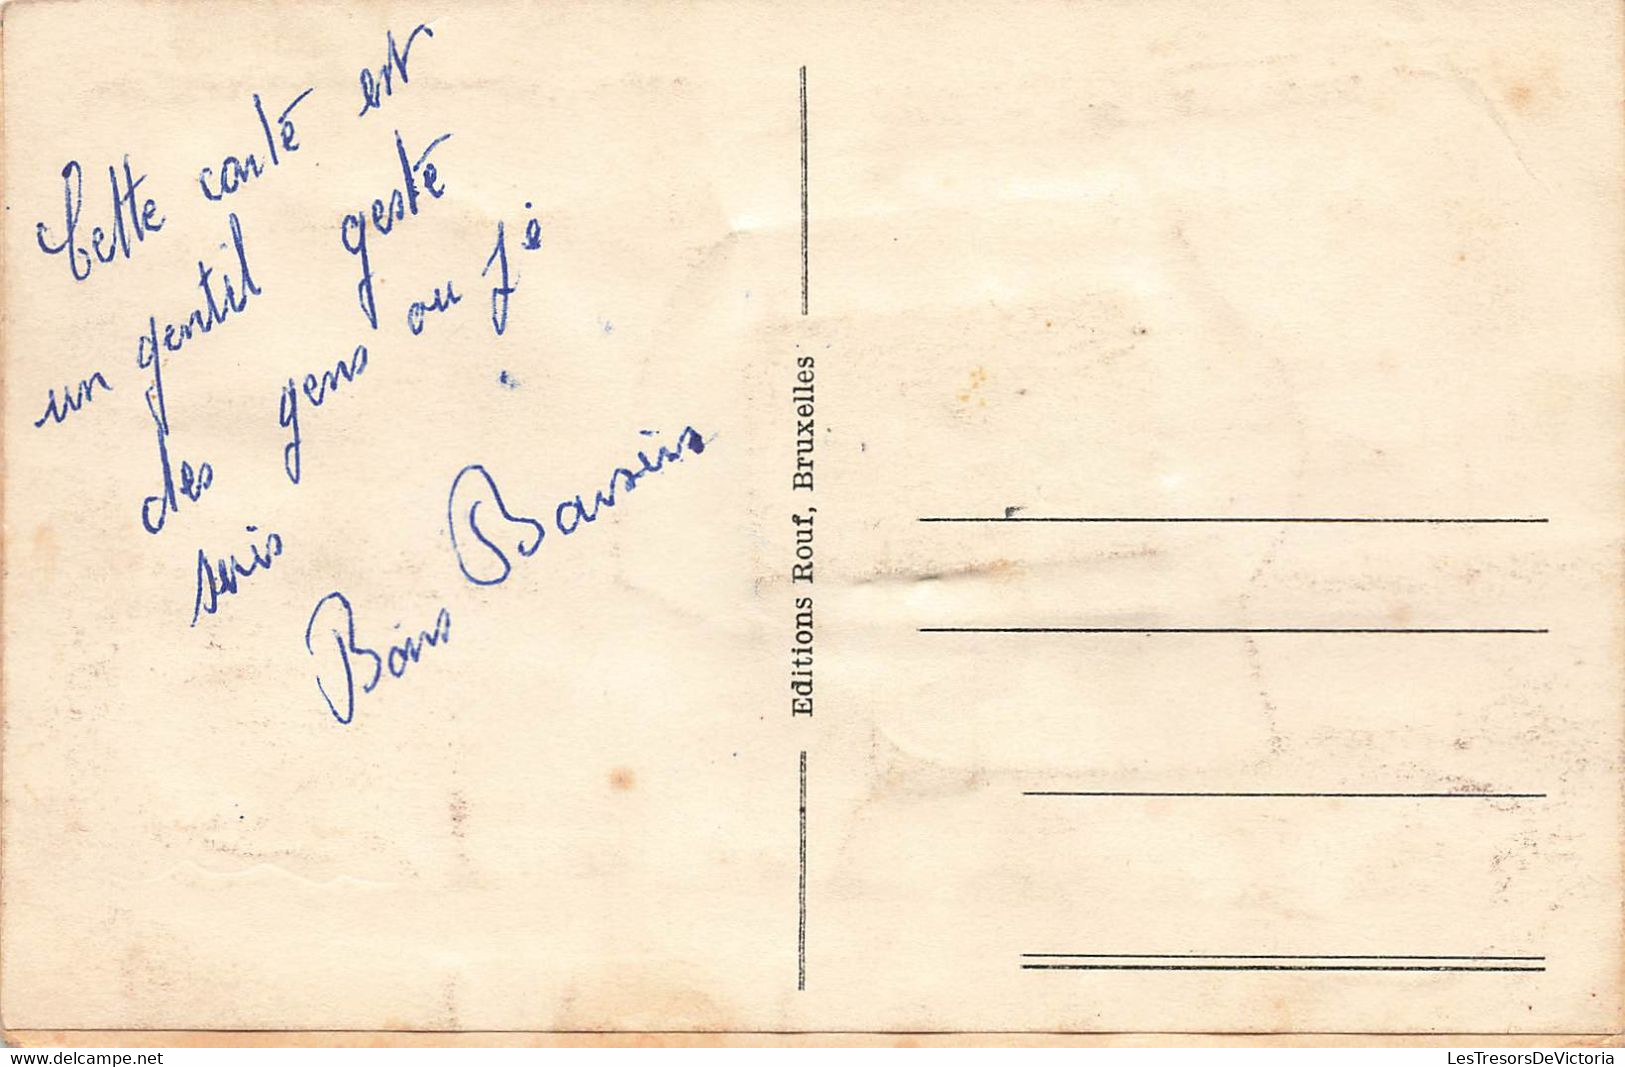 Cette carte est
un gentil geste
des gens ou je
suis
Bons Baisers
Editions Rouf, Bruxelles
delcampe.net
LesTresorsDeVictoria